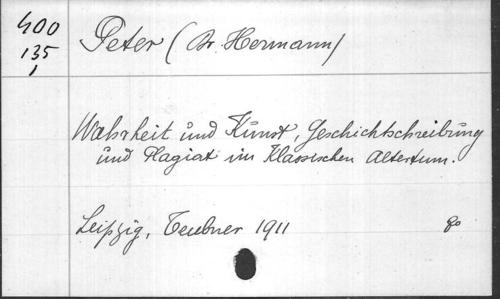 400
135
Peter (Dr. Hermann)
Wahrheit und Kunst, Geschichtschreibung
und Plagiat im Klassischen Altertum.
Leipzig, Teubner 1911